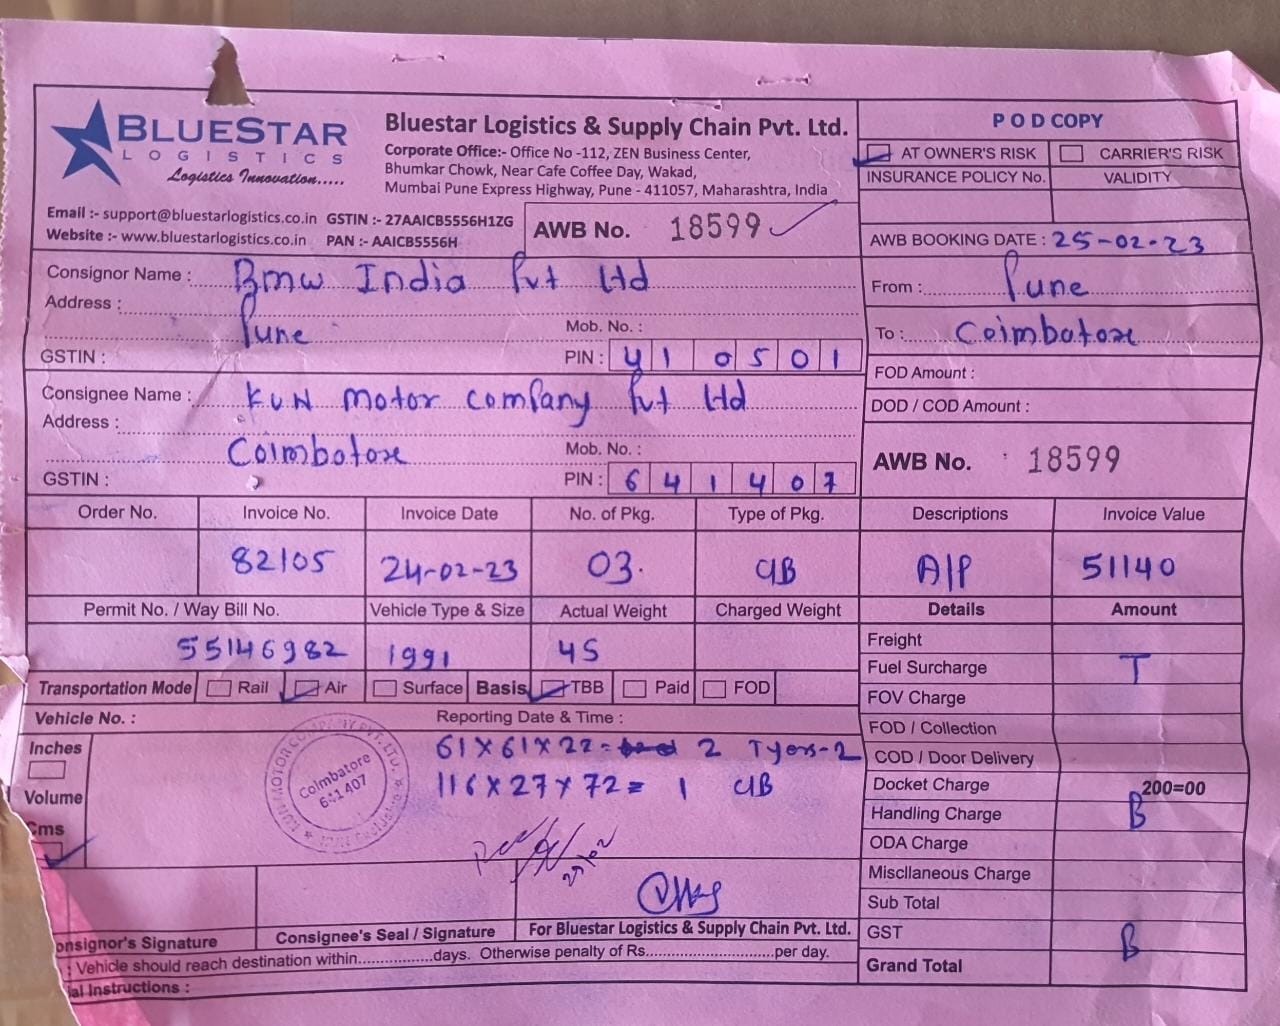 BLUESTAR
LOGISTICS
Logistics Innovation.....
Bluestar Logistics & Supply Chain Pvt. Ltd.
Corporate Office:- Office No -112, ZEN Business Center,
Bhumkar Chowk, Near Cafe Coffee Day, Wakad,
Mumbai Pune Express Highway, Pune - 411057, Maharashtra, India
Email :- support@bluestarlogistics.co.in GSTIN :- 27AAICB5556H1ZG
Website :- www.bluestarlogistics.co.in PAN :- AAICB5556H
AWB No. 18599
POD COPY
AT OWNER'S RISK CARRIER'S RISK
INSURANCE POLICY No. VALIDITY
AWB BOOKING DATE : 25-02-23
Consignor Name : Bmw India Pvt Ltd
Address :
Pune
Mob. No. :
GSTIN : PIN : 410501
From : Pune
To : Coimbatore
FOD Amount :
DOD / COD Amount :
Consignee Name : KUN Motor Company Pvt Ltd
Address :
Coimbatore
Mob. No. :
GSTIN : PIN : 641407
AWB No. 18599
Order No. Invoice No. Invoice Date No. of Pkg. Type of Pkg. Descriptions Invoice Value
82105 24-02-23 03. CIB A/P 51140
Permit No. / Way Bill No. Vehicle Type & Size Actual Weight Charged Weight Details Amount
55146982 1991 45
Transportation Mode Rail Air Surface Basis TBB Paid FOD
Vehicle No. : Reporting Date & Time :
Inches
Volume
Cms
61 X 61 X 22 = 2 Tyers-2
116 X 27 X 72 = 1 CIB
KUN MOTOR COMPANY PVT. LTD.
Coimbatore
641 407
27/02
Freight
Fuel Surcharge T
FOV Charge
FOD / Collection
COD / Door Delivery
Docket Charge 200=00
Handling Charge B
ODA Charge
Miscllaneous Charge
Sub Total
GST B
Grand Total
onsignor's Signature Consignee's Seal / Signature For Bluestar Logistics & Supply Chain Pvt. Ltd.
: Vehicle should reach destination within................days. Otherwise penalty of Rs............................per day.
ial Instructions :